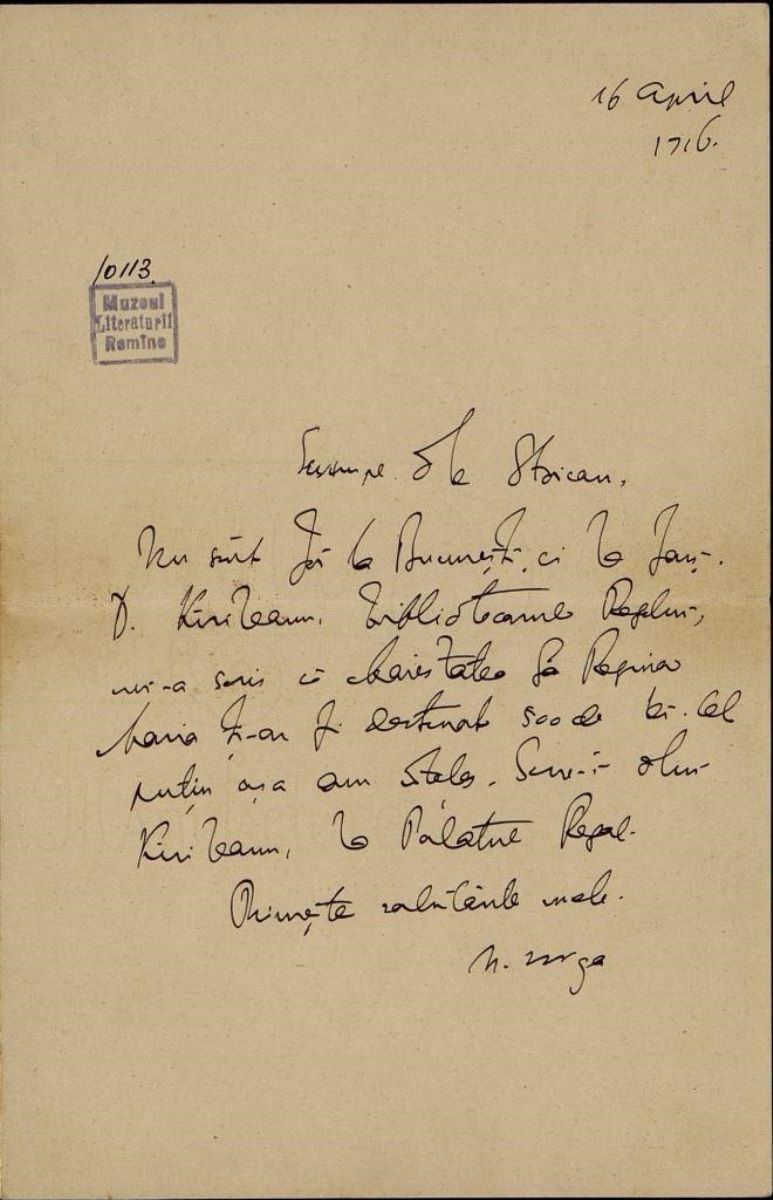 16 April
1916.
10113.
Muzeul
Literaturii
Romîne
Scumpe Dle Stoican,
Nu sînt la București, ci la Iași.
D. Kirileanu, bibliotecarul Regelui,
mi-a scris că Maiestatea Sa Regina
Maria ți-ar fi destinat 500 de lei. Cel
puțin așa am înțeles. Scrie-i dlui
Kirileanu, la Palatul Regal.
Primește salutările mele.
N. Iorga